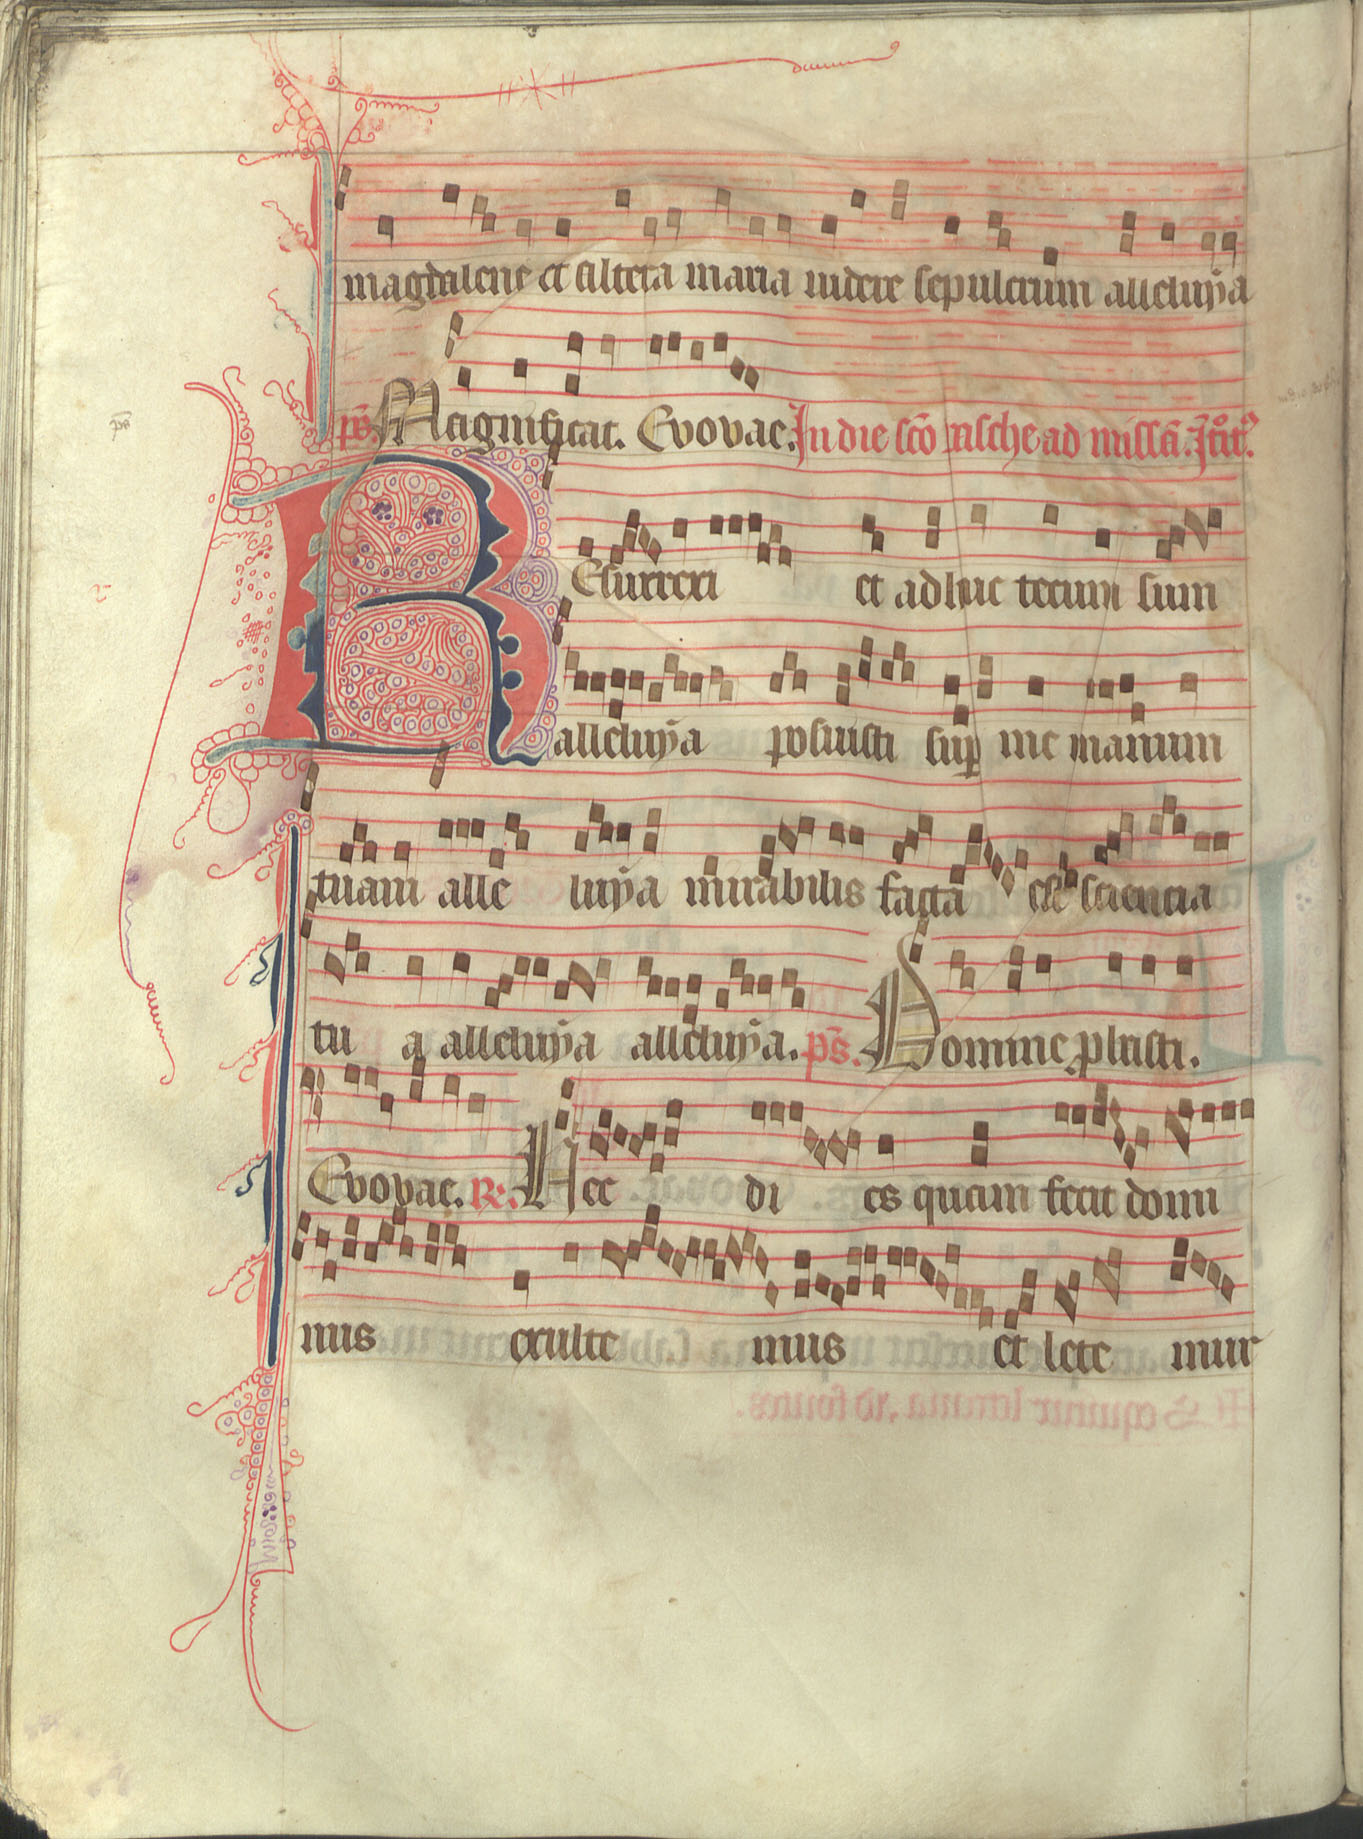 magdalene et altera maria uidere sepulcrum alleluya
ps. Magnificat. Evovae. In die sco pasche ad missa. Itroit9.
Resurrexi et adhuc tecum sum
alleluya posuisti sup me manum
tuam alle luya mirabilis facta est sciencia
tu a alleluya alleluya. ps. Domine pbasti.
Evovae. R. Hec di es quam fecit domi
nus exulte mus et lete mur